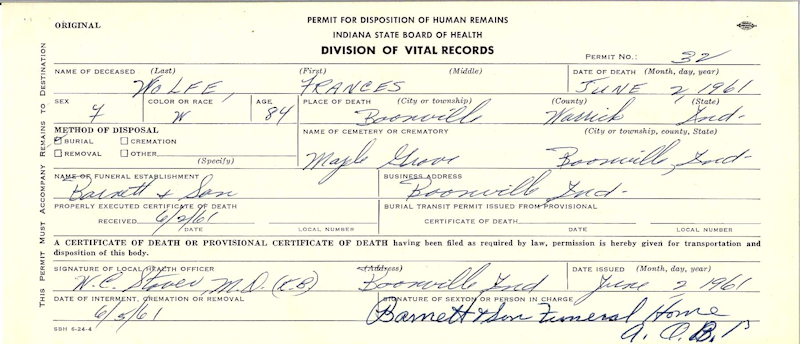 ORIGINAL
PERMIT FOR DISPOSITION OF HUMAN REMAINS
INDIANA STATE BOARD OF HEALTH
DIVISION OF VITAL RECORDS
PERMIT NO.: 32
THIS PERMIT MUST ACCOMPANY REMAINS TO DESTINATION
NAME OF DECEASED (Last) (First) (Middle) DATE OF DEATH (Month, day, year)
WOLFE, FRANCES JUNE 2, 1961
SEX COLOR OR RACE AGE PLACE OF DEATH (City or township) (County) (State)
F W 84 Boonville Warrick Ind-
METHOD OF DISPOSAL NAME OF CEMETERY OR CREMATORY (City or township, county, State)
BURIAL CREMATION
REMOVAL OTHER Maple Grove Boonville, Ind-
(Specify)
NAME OF FUNERAL ESTABLISHMENT BUSINESS ADDRESS
Barnett & Son Boonville Ind-
PROPERLY EXECUTED CERTIFICATE OF DEATH BURIAL TRANSIT PERMIT ISSUED FROM PROVISIONAL
RECEIVED 6/2/61 CERTIFICATE OF DEATH
DATE LOCAL NUMBER DATE LOCAL NUMBER
A CERTIFICATE OF DEATH OR PROVISIONAL CERTIFICATE OF DEATH having been filed as required by law, permission is hereby given for transportation and
disposition of this body.
SIGNATURE OF LOCAL HEALTH OFFICER (Address) DATE ISSUED (Month, day, year)
W.C. Stover, M.D. (KB) Boonville Ind June 2 1961
DATE OF INTERMENT, CREMATION OR REMOVAL SIGNATURE OF SEXTON OR PERSON IN CHARGE
6/5/61 Barnett & Son Funeral Home
SBH 6-24-4